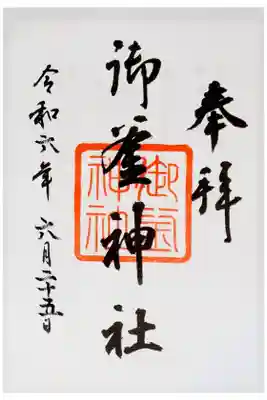 奉拝
御釜神社
御釜神社
令和六年 六月二十五日